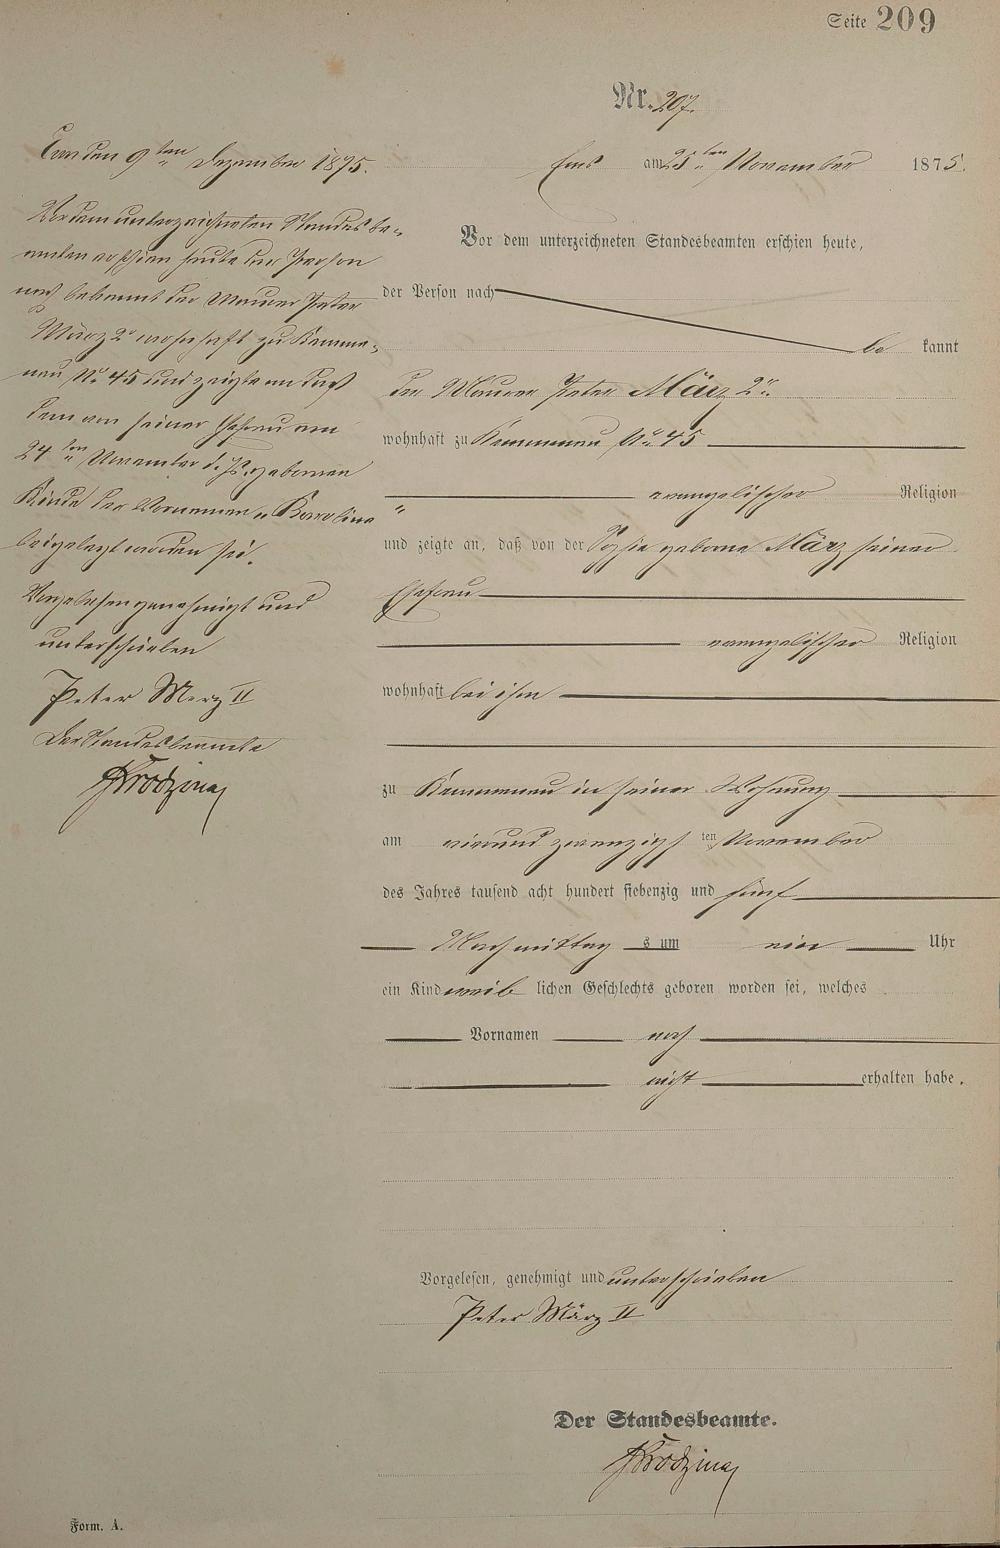 Seite 209
Nr. 207.
Ems am 25ten November 1875.
Vor dem unterzeichneten Standesbeamten erschien heute,
der Person nach
be kannt
der Maurer Peter März 2r
wohnhaft zu Kemmenau No 45
evangelischer Religion
und zeigte an, daß von der Sophie geborne März seiner
Ehefrau
evangelischer Religion
wohnhaft bei ihm
zu Kemmenau in seiner Wohnung
am vierundzwanzigsten November
des Jahres tausend acht hundert siebenzig und fünf
Nachmittags um ein Uhr
ein Kind weiblichen Geschlechts geboren worden sei, welches
Vornamen noch
nicht erhalten habe.
Vorgelesen, genehmigt und unterschrieben
Peter März II
Der Standesbeamte.
Form. A.
Ems den 9ten Dezember 1875.
Vor dem unterzeichneten Standesbe-
amten erschien heute der Person
nach bekannt der Maurer Peter
März 2r wohnhaft zu Kemme-
nau No 45 und zeigte an daß
dem von seiner Ehefrau am
24ten November d. Js. geborenen
Kinde der Vornamen „Karoline“
beigelegt worden sei.
Vorgelesen genehmigt und
unterschrieben
Peter Merz II
Der Standesbeamte